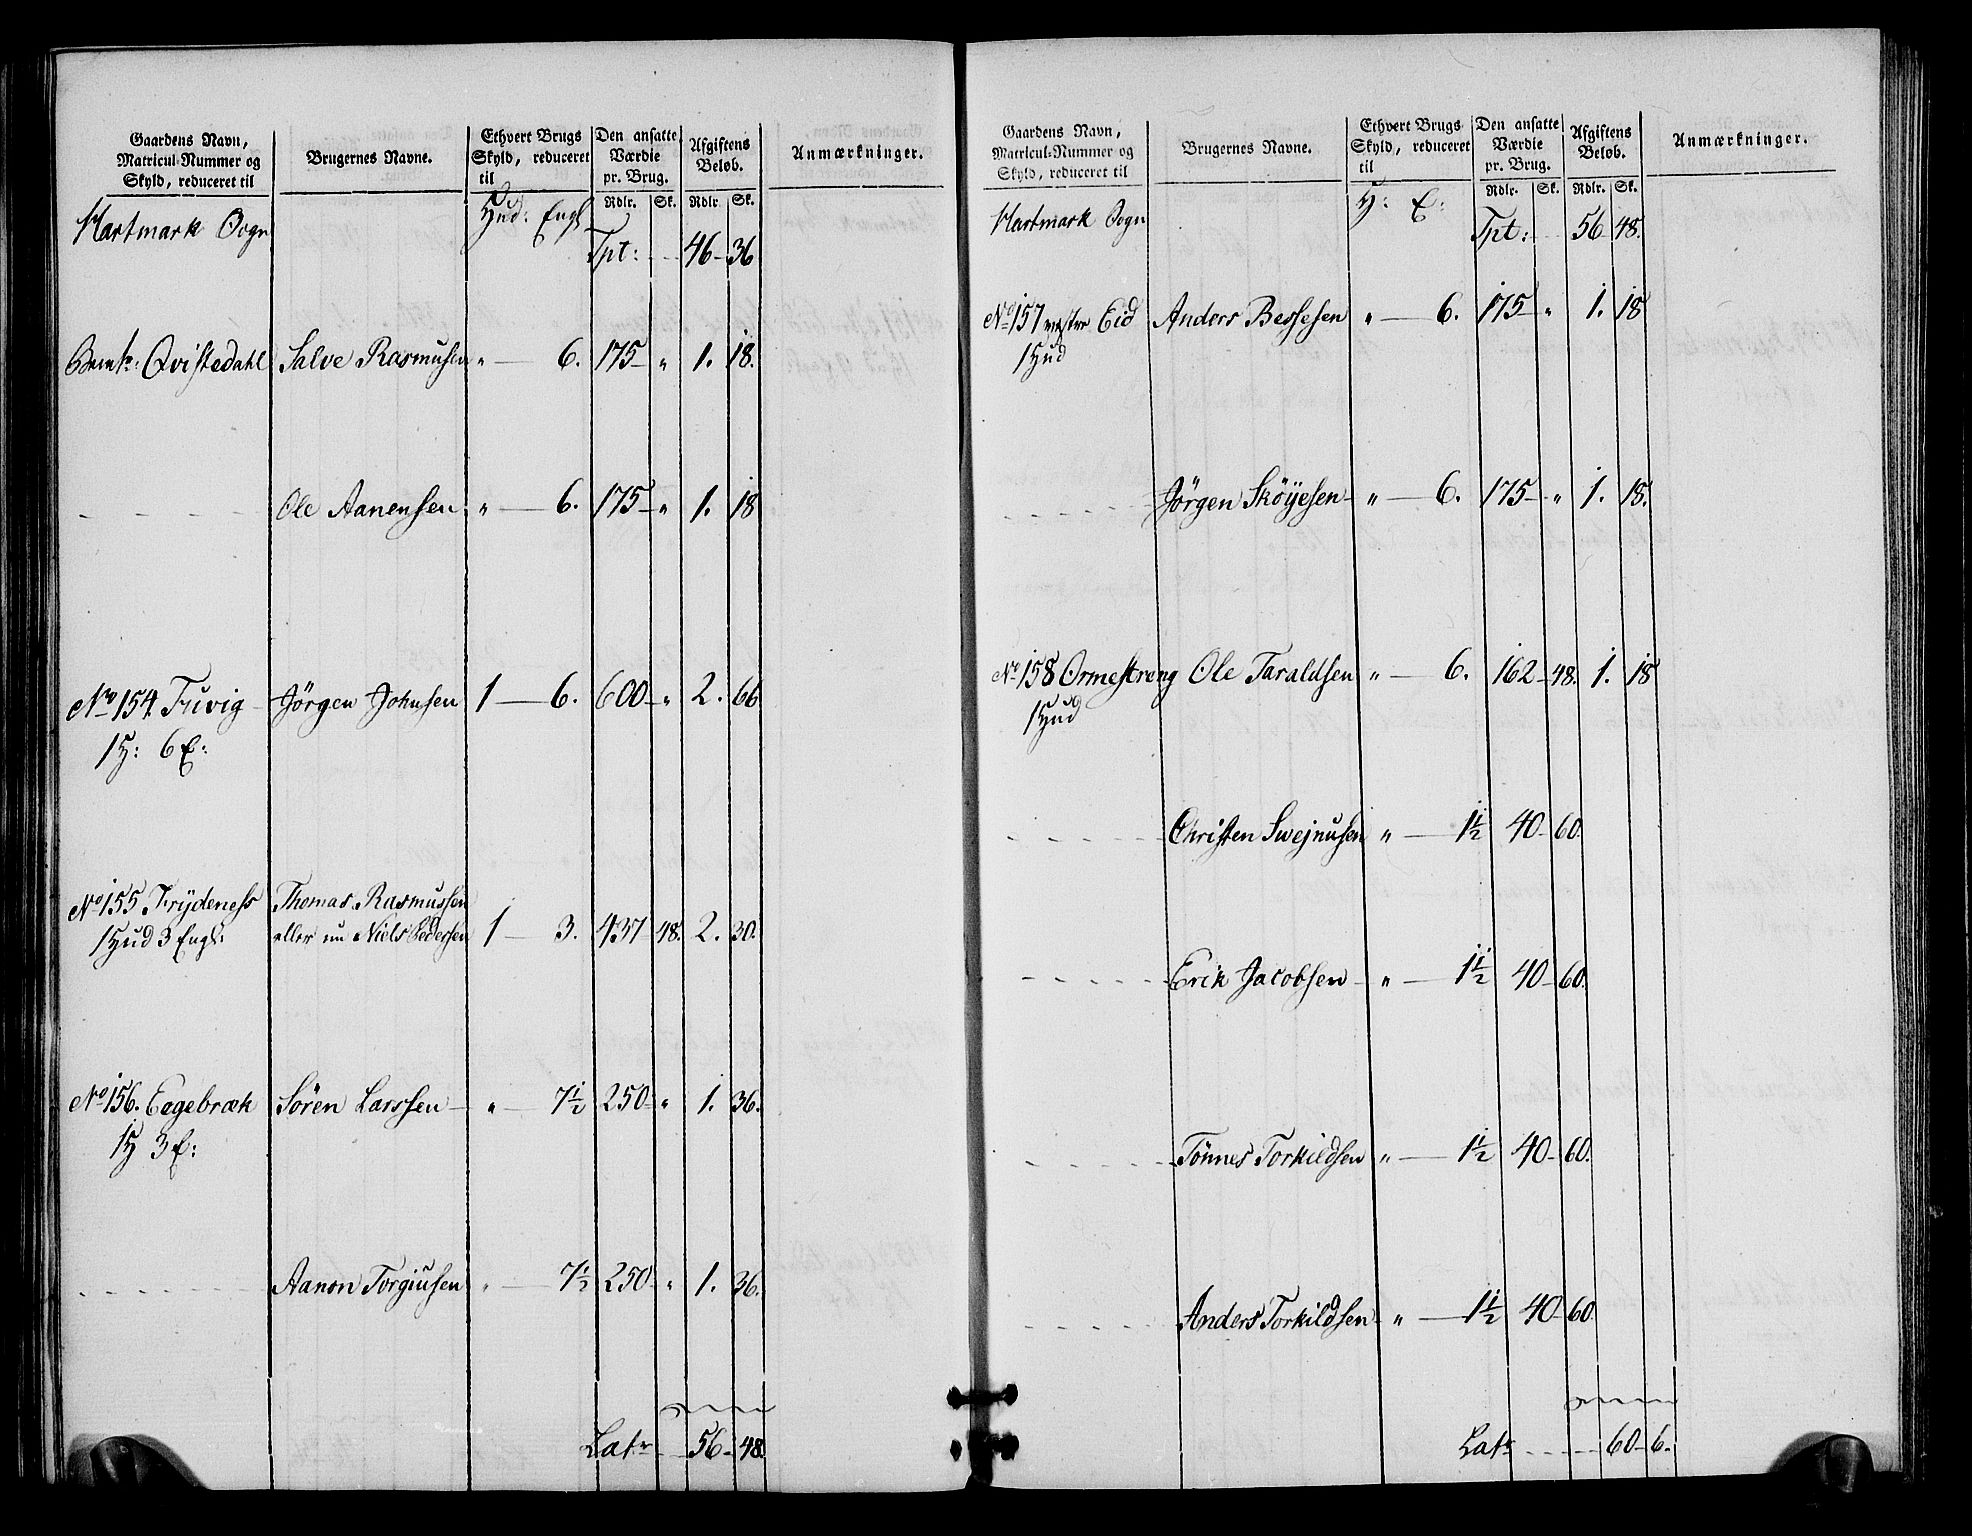 Gaardens Navn,
Matricul-Nummer og
Skyld, reduceret til
Brugernes Navne.
Ethvert Brugs
Skyld, reduceret
til
Den ansatte
Værdie
pr. Brug.
Afgiftens
Beløb.
Anmærkninger.
Rdlr. Sk. Rdlr. Sk.
Hartmark Sogn Hud: Engl
Tpt: 46 - 36
Qvistedahl Salve Rasmusen „ — 6. 175 - „ 1. 18.
Ole Aanensen „ — 6. 175 - „ 1. 18
No 154. Tuvig - Jörgen Johnsen 1 — 6. 600 - „ 2. 66
1 H: 6 E:
No 155 Frydeness Thomas Rasmussen
1 Hud 3 Engl: eller nu Niels Pedersen 1 — 3. 437 48. 2. 30.
No 156. Eegebræk Sören Larssen — „ — 7½ 250 - „ 1. 36.
1 H 3 E:
Aanon Torgiusen „ — 7½ 250 - „ 1. 36.
Latr 56 - 48.
Gaardens Navn,
Matricul-Nummer og
Skyld, reduceret til
Brugernes Navne.
Ethvert Brugs
Skyld, reduceret
til
Den ansatte
Værdie
pr. Brug.
Afgiftens
Beløb.
Anmærkninger.
Rdlr. Sk. Rdlr. Sk.
Hartmark Sogn H: E:
Tpt: 56 48.
No 157 vestre Eid Anders Bessesen „ — 6. 175 - „ 1. 18
1 Hud
Jörgen Sköyesen - „ — 6. 175 - „ 1. 18.
No 158 Ormestreng Ole Taraldsen „ — 6. 162 - 48. 1. 18
1 Hud
Christen Swejnusen „ — 1½ 40 - 60.
Erik Jacobsen - „ — 1½ 40 - 60.
Tönnes Torkildsen „ — 1½ 40 - 60.
Anders Torkildsen - „ — 1½ 40 - 60
Latr 60 - 6.